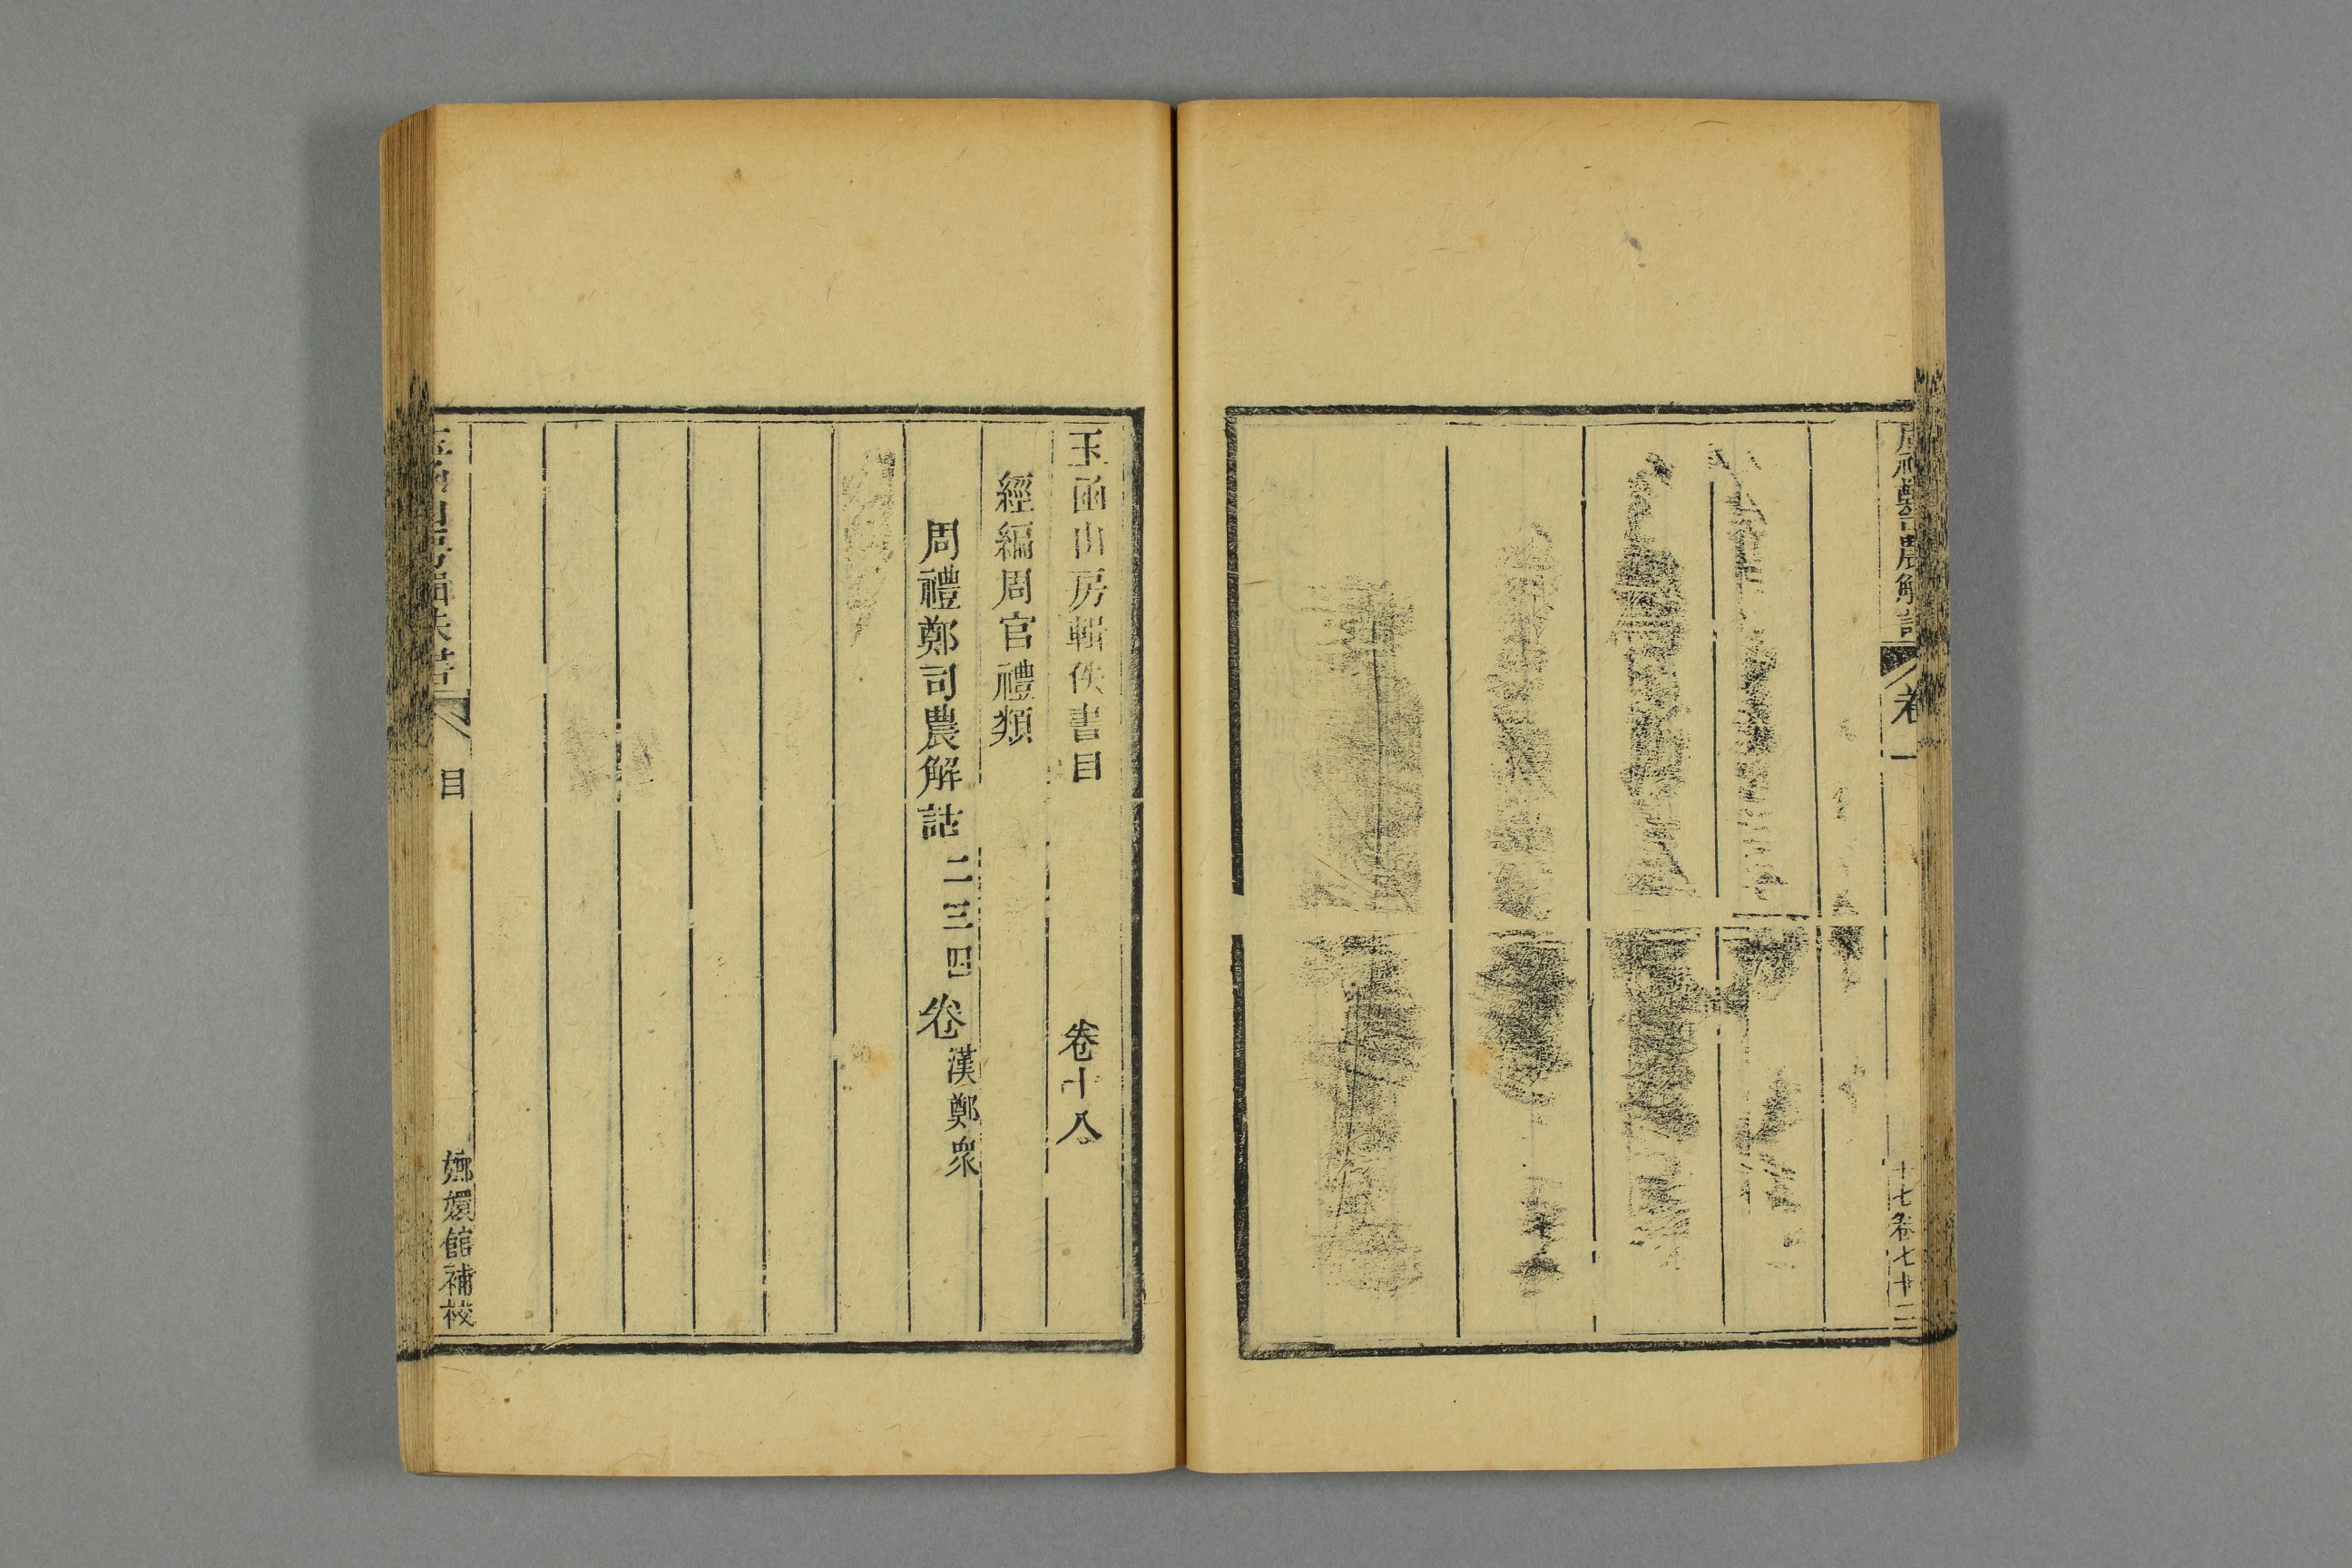 周禮鄭司農解詁 卷一 十七卷七十二
玉函山房輯佚書目 卷十八
經編周官禮類
周禮鄭司農解詁二三四卷漢鄭衆
玉函山房輯佚書 目 嫏嬛館補校